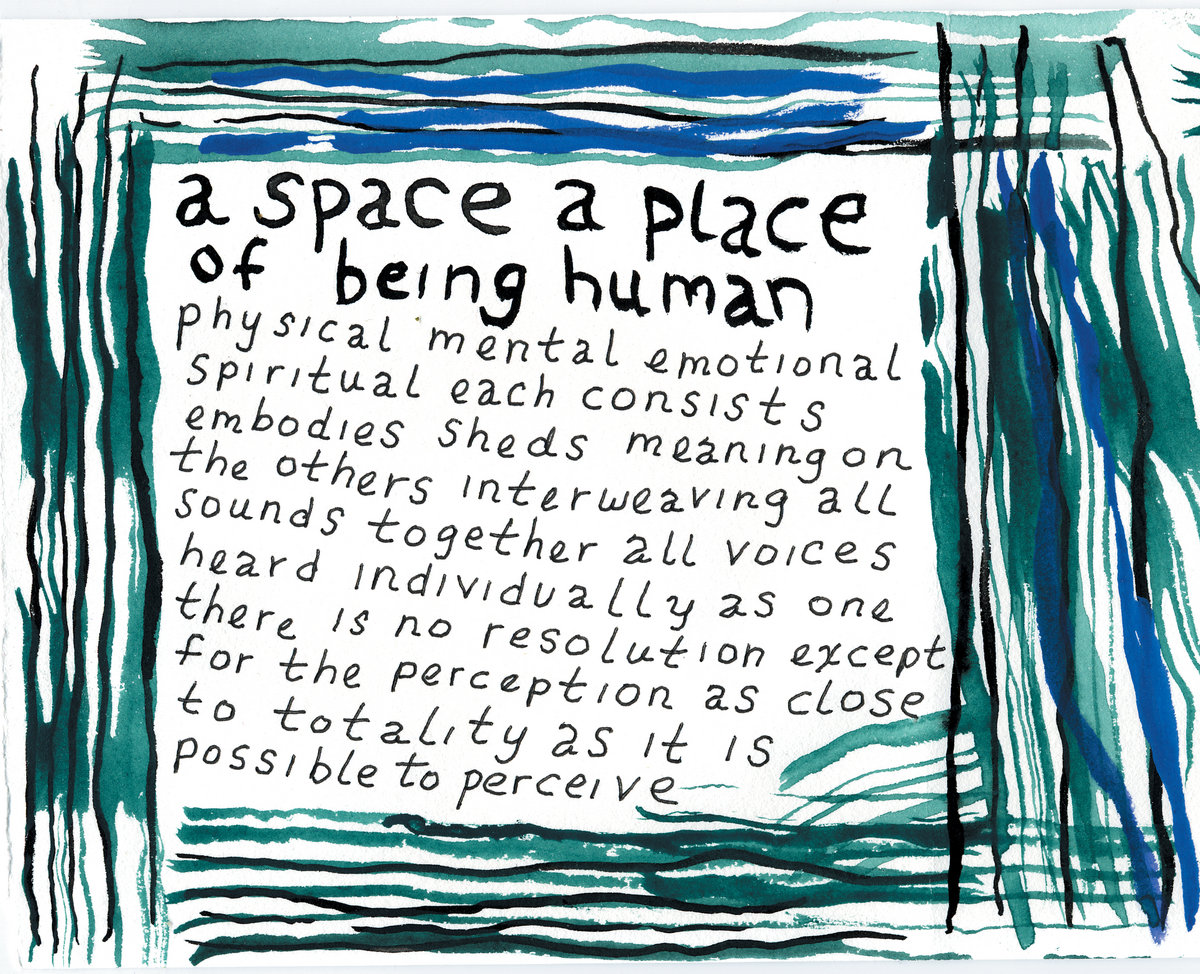 a space a place
of being human
physical mental emotional
spiritual each consists
embodies sheds meaning on
the others interweaving all
sounds together all voices
heard individually as one
there is no resolution except
for the perception as close
to totality as it is
possible to perceive